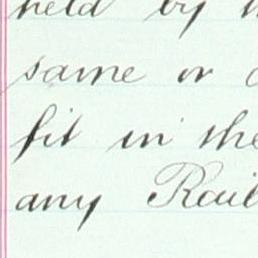 held by
same or
fit in the
any Rail